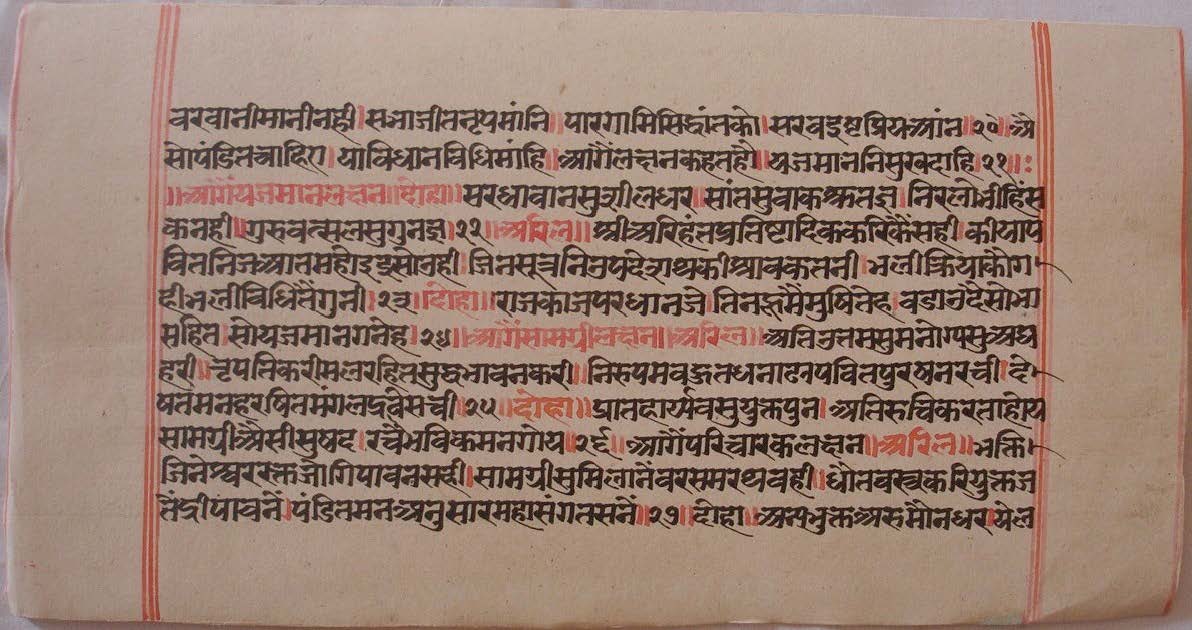 वरवानीमानीनही। सभाजीतनृपमांनि॥ पारगामिसिद्धांतको। सरवइष्टप्रियआंन॥२०॥अै
सोपंडितचाहिए। याविधानविधिमांहि॥ आगैंलछनकहतहौ। यजमाननिसुखदाहि॥२१॥
॥आगैंयजमानलछन॥दोहा॥ सरधावानसुशीलधर। सांतसुवाककृतज्ञ। निरलोभीहिंस
कनही॥गुरुवत्सलसुगुनज्ञ॥२२॥अरिल॥ श्रीअरिहंतप्रतिष्टादिककरिकैंसही। कीयाप
वितनिजआतमही जिनसूत्रनि श्रावक भलीक्रियाकोग
हीभलीविधितैंगुनी॥२३॥दोहा॥ राजकाजपरधानजे। तिनहूमैंमुषितेह।
सहित। सोयजमानगनेह॥२४॥आगैंसामग्रीलछन॥अरिल॥ अतिउतमसुमनोग्यसुअघ
हरी॥नृपतिकरीमलरहितसुद्धभावनकरी॥ निरुपम पवित
षतमनहरषितमंगलद्रव्यसची॥२५॥दोहा॥ अतिरुचिकरताहोय
सामग्रीअैसीसुषद। रचैभविकमनगोय॥२६॥ आगैंपरिचारकलछन॥अरिल॥भक्ति
जिनेश्वररक्तजोगिपावनसही। सामग्रीसुमिलानैंवरसमरथवही। धौतवस्त्रकरियुक्तज
तेंद्रीपावनैं। पंडितमनअनुसारमहासंगतसनैं॥२७॥दोहा॥ अल्पभुक्तअरुमौनधर।येल